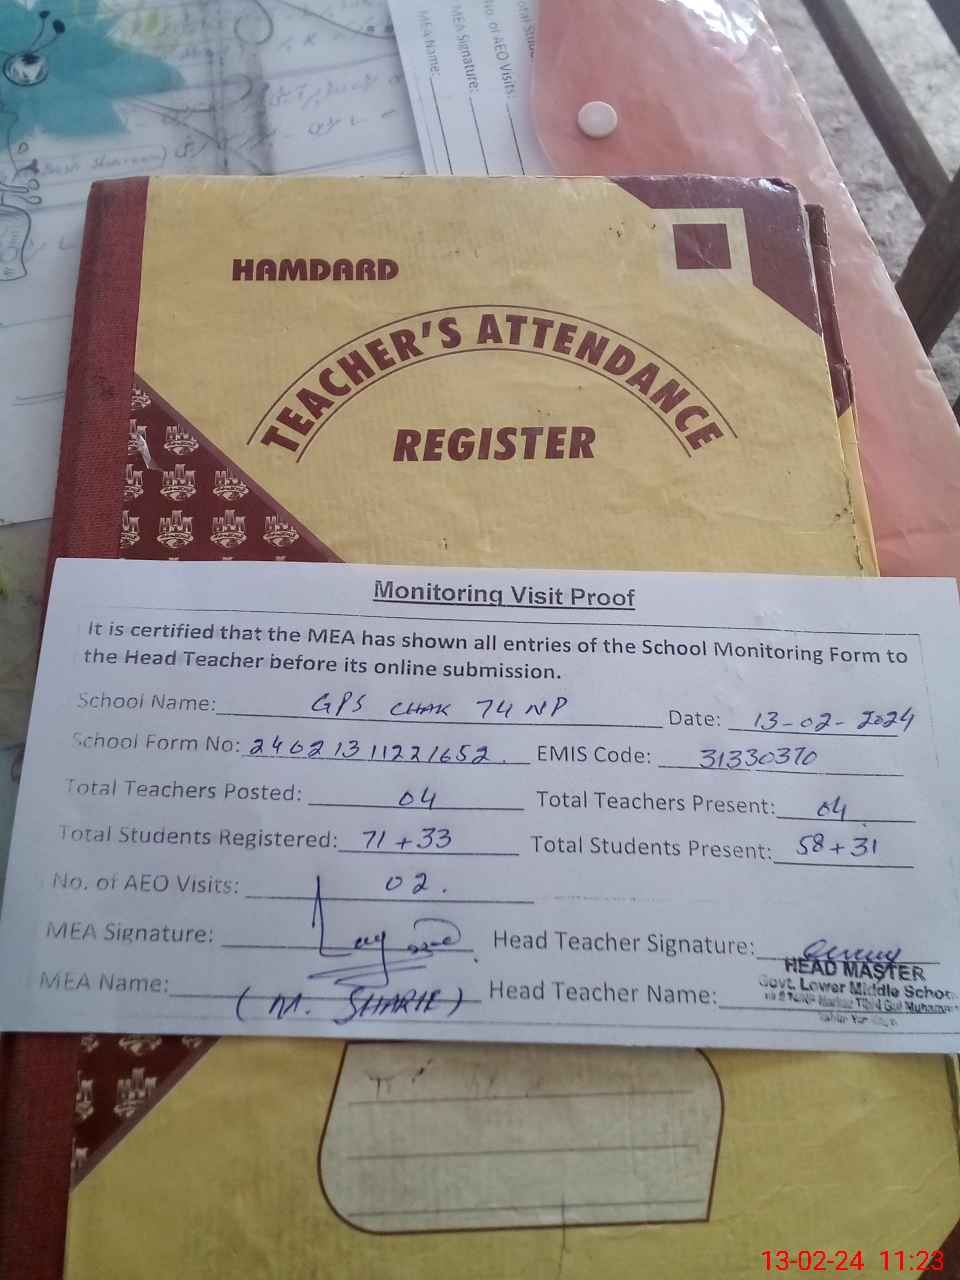 otal Stud
No. of AEO Visits:
MEA Signature:
MEA Name:
HAMDARD
TEACHER'S ATTENDANCE
REGISTER
Monitoring Visit Proof
It is certified that the MEA has shown all entries of the School Monitoring Form to
the Head Teacher before its online submission.
School Name: GPS CHAK 74 NP Date: 13-02-2024
School Form No: 24021311221652. EMIS Code: 31330370
Total Teachers Posted: 04 Total Teachers Present: 04
Total Students Registered: 71+33 Total Students Present: 58+31
No. of AEO Visits: 02.
MEA Signature: Head Teacher Signature:
HEAD MASTER
MEA Name: (M. SHARIF) Head Teacher Name:
Govt. Lower Middle School
13-02-24 11:23